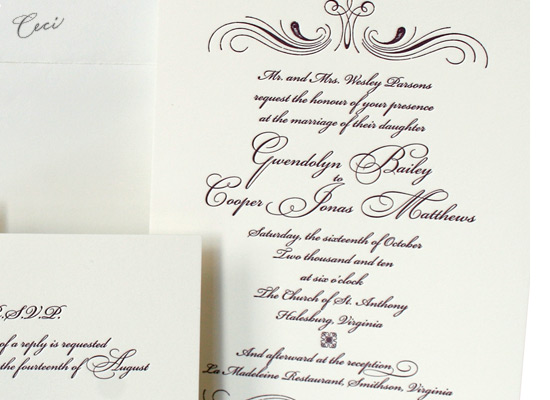 Ceci
Mr. and Mrs. Wesley Parsons
request the honour of your presence
at the marriage of their daughter
Gwendolyn Bailey
to
Cooper Jonas Matthews
Saturday, the sixteenth of October
Two thousand and ten
at six o'clock
The Church of St. Anthony
Halesburg, Virginia
And afterward at the reception
La Madeleine Restaurant, Smithson, Virginia
R.S.V.P.
of a reply is requested
the fourteenth of August